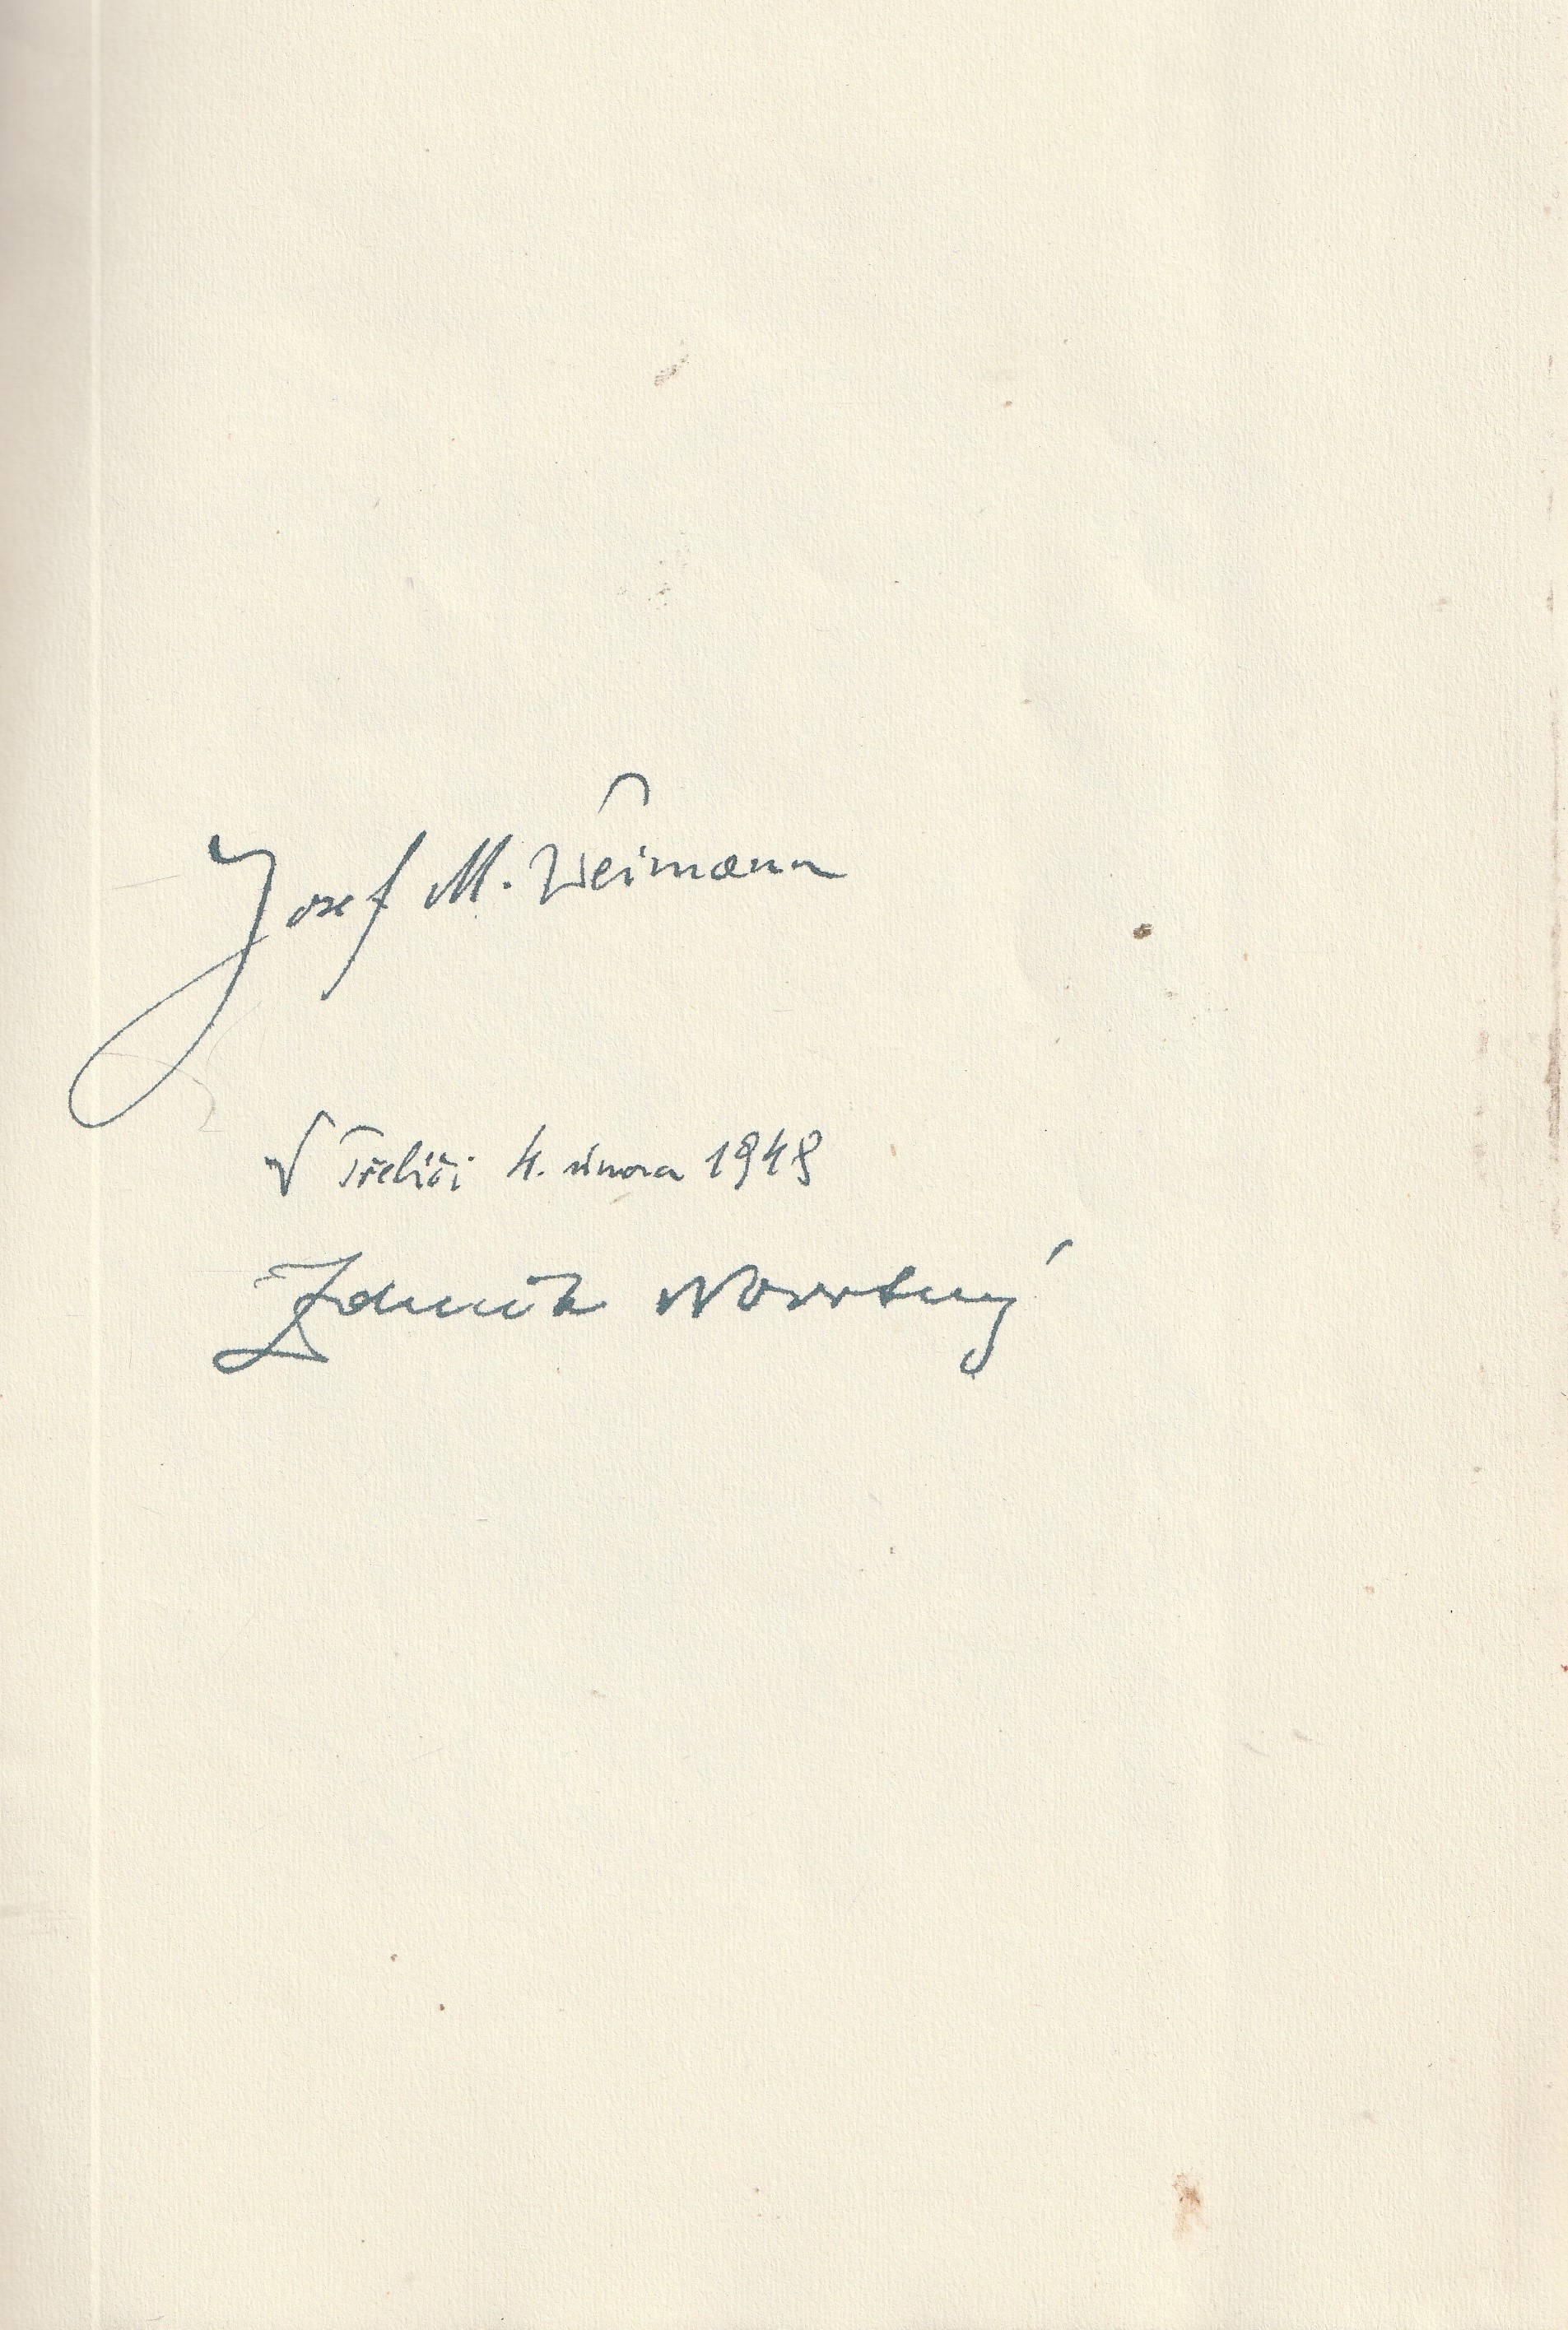 Josef M. Weimann
V Třebíči 4. února 1948
Zdeněk Novotný